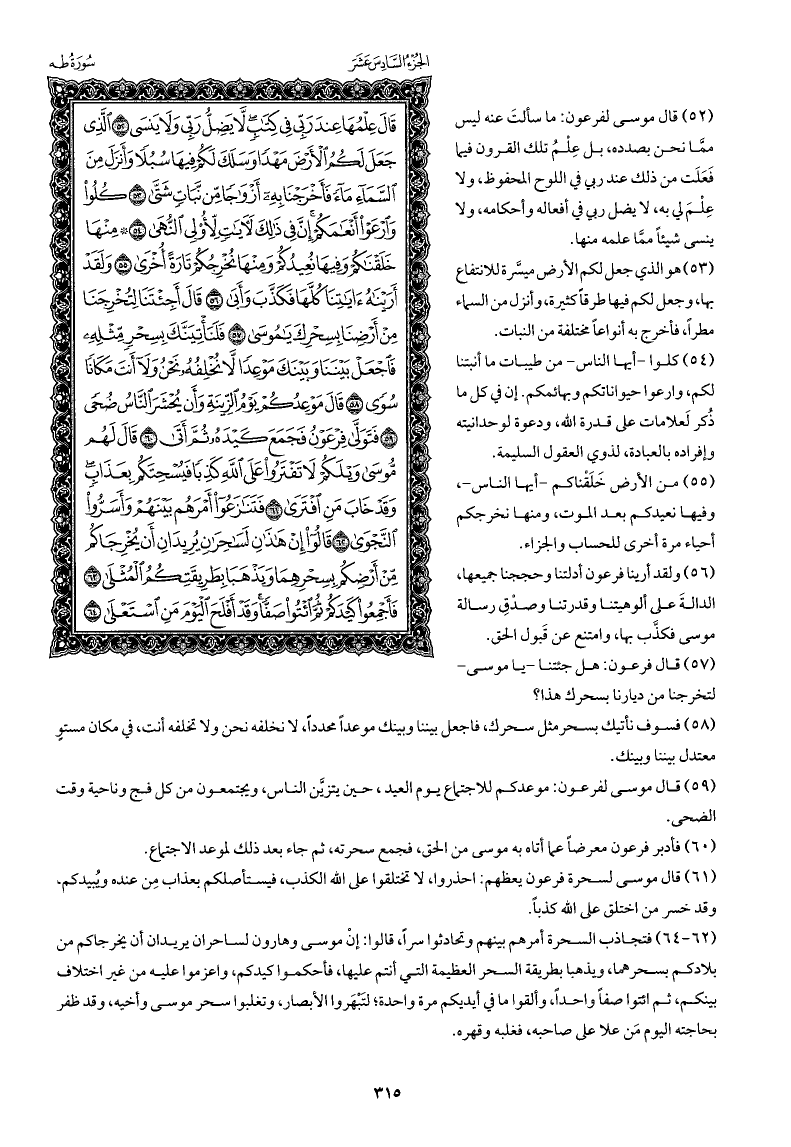 الجزء السادس عشر
سورة طه
قَالَ عِلْمُهَا عِندَ رَبِّي فِي كِتَٰبٖۖ لَّا يَضِلُّ رَبِّي وَلَا يَنسَى ٥٢ ٱلَّذِي
جَعَلَ لَكُمُ ٱلۡأَرۡضَ مَهۡدٗا وَسَلَكَ لَكُمۡ فِيهَا سُبُلٗا وَأَنزَلَ مِنَ
ٱلسَّمَآءِ مَآءٗ فَأَخۡرَجۡنَا بِهِۦٓ أَزۡوَٰجٗا مِّن نَّبَاتٖ شَتَّىٰ ٥٣ كُلُواْ
وَٱرۡعَوۡاْ أَنۡعَٰمَكُمۡۚ إِنَّ فِي ذَٰلِكَ لَأٓيَٰتٖ لِّأُوْلِي ٱلنُّهَىٰ ٥٤ ۞ مِنۡهَا
خَلَقۡنَٰكُمۡ وَفِيهَا نُعِيدُكُمۡ وَمِنۡهَا نُخۡرِجُكُمۡ تَارَةً أُخۡرَىٰ ٥٥ وَلَقَدۡ
أَرَيۡنَٰهُ ءَايَٰتِنَا كُلَّهَا فَكَذَّبَ وَأَبَىٰ ٥٦ قَالَ أَجِئۡتَنَا لِتُخۡرِجَنَا
مِنۡ أَرۡضِنَا بِسِحۡرِكَ يَٰمُوسَىٰ ٥٧ فَلَنَأۡتِيَنَّكَ بِسِحۡرٖ مِّثۡلِهِۦ
فَٱجۡعَلۡ بَيۡنَنَا وَبَيۡنَكَ مَوۡعِدٗا لَّا نُخۡلِفُهُۥ نَحۡنُ وَلَآ أَنتَ مَكَانٗا
سُوٗى ٥٨ قَالَ مَوۡعِدُكُمۡ يَوۡمُ ٱلزِّينَةِ وَأَن يُحۡشَرَ ٱلنَّاسُ ضُحٗى
٥٩ فَتَوَلَّىٰ فِرۡعَوۡنُ فَجَمَعَ كَيۡدَهُۥ ثُمَّ أَتَىٰ ٦٠ قَالَ لَهُم
مُّوسَىٰ وَيۡلَكُمۡ لَا تَفۡتَرُواْ عَلَى ٱللَّهِ كَذِبٗا فَيُسۡحِتَكُم بِعَذَابٖۖ
وَقَدۡ خَابَ مَنِ ٱفۡتَرَىٰ ٦١ فَتَنَٰزَعُوٓاْ أَمۡرَهُم بَيۡنَهُمۡ وَأَسَرُّواْ
ٱلنَّجۡوَىٰ ٦٢ قَالُوٓاْ إِنۡ هَٰذَٰنِ لَسَٰحِرَٰنِ يُرِيدَانِ أَن يُخۡرِجَاكُم
مِّنۡ أَرۡضِكُم بِسِحۡرِهِمَا وَيَذۡهَبَا بِطَرِيقَتِكُمُ ٱلۡمُثۡلَىٰ ٦٣
فَأَجۡمِعُواْ كَيۡدَكُمۡ ثُمَّ ٱئۡتُواْ صَفّٗاۚ وَقَدۡ أَفۡلَحَ ٱلۡيَوۡمَ مَنِ ٱسۡتَعۡلَىٰ ٦٤
(٥٢) قال موسى لفرعون: ما سألتَ عنه ليس
ممَّا نحـن بصدده، بـل عِلْـمُ تلك القرون فيما
فَعَلَت من ذلك عند ربي في اللوح المحفوظ، ولا
عِلْـمَ لي به، لا يضل ربي في أفعاله وأحكامه، ولا
ينسى شيئاً ممَّا علمه منها.
(٥٣) هو الذي جعل لكم الأرض ميسَّرة للانتفاع
بها، وجعل لكم فيها طرقاً كثيرة، وأنزل من السماء
مطراً، فأخرج به أنواعاً مختلفة من النبات.
(٥٤) كلـوا -أيهـا الناس- من طيبات ما أنبتنا
لكم، وارعوا حيواناتكم وبهائمكم. إن في كل ما
ذُكر لَعلامات على قـدرة الله، ودعوة لوحدانيته
وإفراده بالعبادة، لذوي العقول السليمة.
(٥٥) مـن الأرض خَلَقْناكـم -أيهـا الناس-،
وفيهـا نعيدكـم بعـد المـوت، ومنهـا نخرجكم
أحياء مرة أخرى للحساب والجزاء.
(٥٦) ولقد أرينا فرعون أدلتنا وحججنا جميعها،
الدالـةَ علـى ألوهيتنـا وقدرتنـا وصدْق رسالة
موسى فكذَّب بها، وامتنع عن قَبول الحق.
(٥٧) قـال فرعـون: هـل جئتنـا -يـا موسـى-
لتخرجنا من ديارنا بسحرك هذا؟
(٥٨) فسـوف نأتيك بسـحر مثل سـحرك، فاجعل بيننا وبينك موعداً محدداً، لا نخلفه نحن ولا تخلفه أنت، في مكان مستوٍ
معتدل بيننا وبينك.
(٥٩) قـال موسـى لفرعـون: موعدكـم للاجتماع يـوم العيد ، حـين يتزيَّن الناس، ويجتمعـون من كل فـج وناحية وقت
الضحى.
(٦٠) فأدبر فرعون معرضاً عما أتاه به موسى من الحق، فجمع سحرته، ثم جاء بعد ذلك لموعد الاجتماع.
(٦١) قال موسـى لسـحرة فرعون يعظهم: احذروا، لا تختلقوا على الله الكذب، فيسـتأصلكم بعذاب مِن عنده ويُبيدكم،
وقد خسر من اختلق على الله كذباً.
(٦٢-٦٤) فتجاذب السحرة أمرهم بينهم وتحادثوا سراً، قالوا: إنْ موسـى وهارون لساحران يريـدان أن يخرجاكم من
بلادكـم بسـحرهما، ويذهبا بطريقة السـحر العظيمة التي أنتم عليها، فأحكمـوا كيدكم، واعزموا عليـه من غير اختلاف
بينكـم، ثـم ائتوا صفاً واحـداً، وألقوا ما في أيديكم مرة واحدة؛ لتَبْهَروا الأبصار، وتغلبوا سحر موسـى وأخيه، وقد ظفر
بحاجته اليوم مَن علا على صاحبه، فغلبه وقهره.
٣١٥